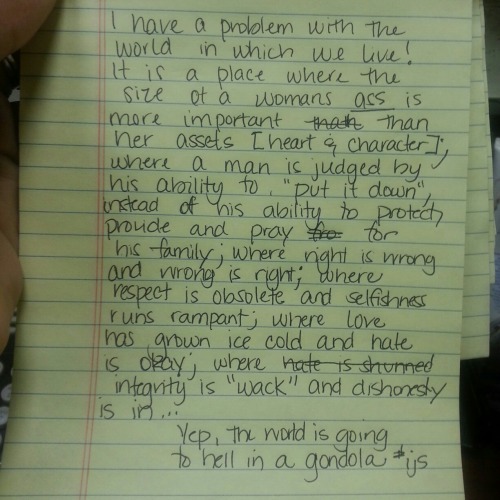 I have a problem with the
world in which we live!
It is a place where the
size of a womans ass is
more important than than
her assets [heart & character];
where a man is judged by
his ability to "put it down",
instead of his ability to protect,
provide and pray for for
his family; where right is wrong
and wrong is right; where
respect is obsolete and selfishness
runs rampant; where love
has grown ice cold and hate
is okay; where hate is shunned
integrity is "wack" and dishonesty
is in...
Yep, the world is going
to hell in a gondola *ijs